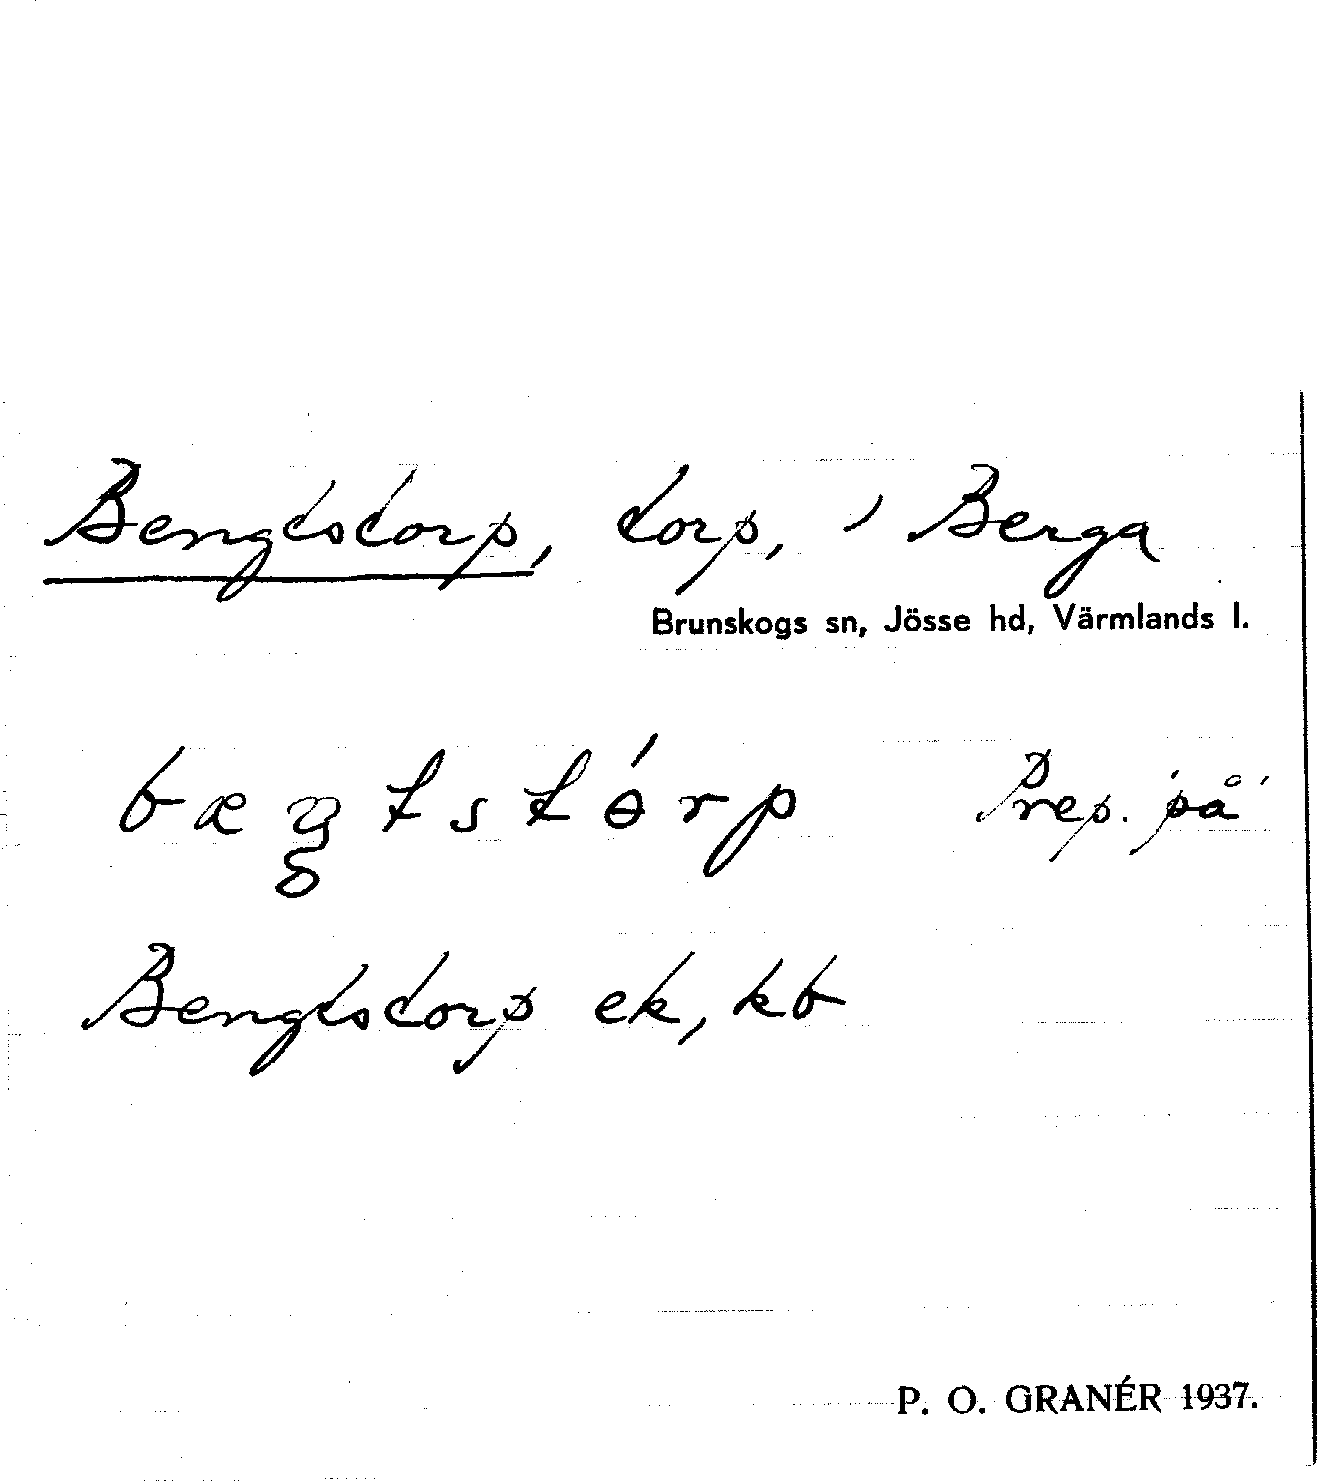 Bengtstorp, torp, i Berga
Brunskogs sn, Jösse hd, Värmlands l.
bæŋtstɵ́rp Prep. 'på'
Bengtstorp ek, kb
P. O. GRANÉR 1937.